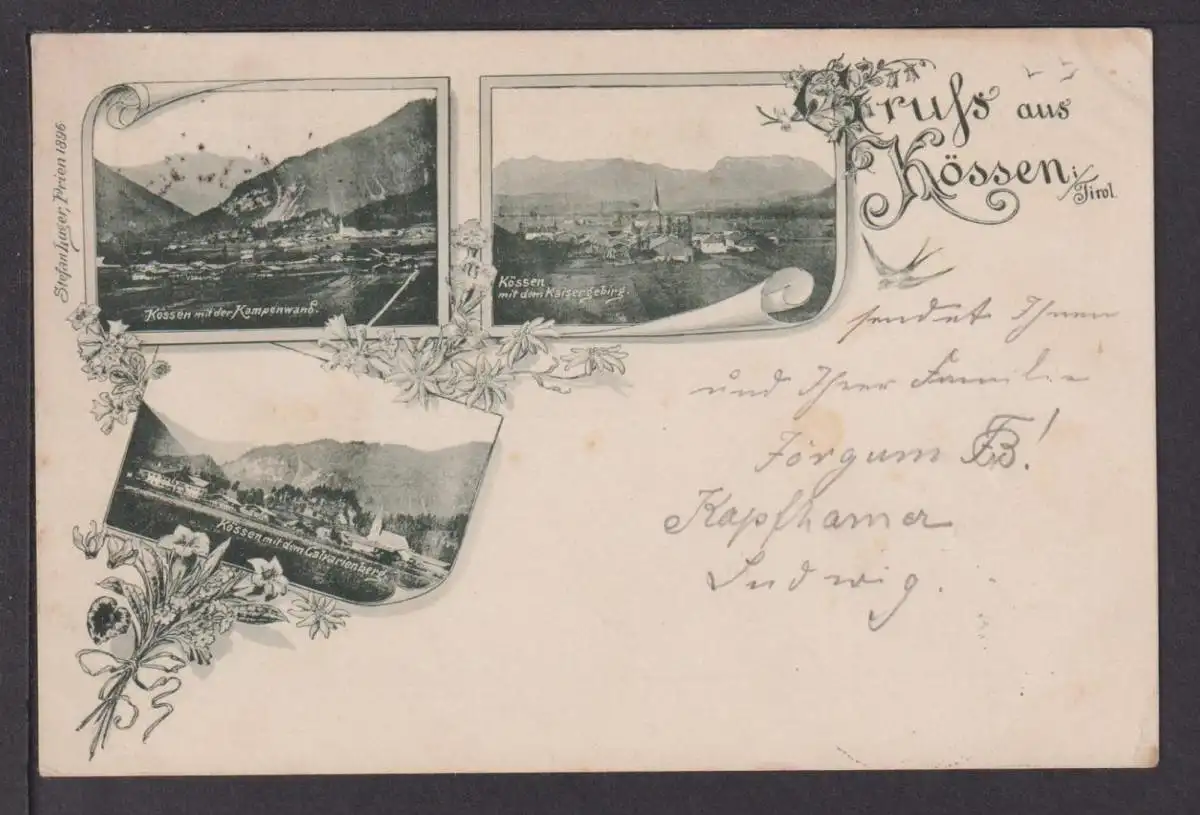 Stefan Luger, Prien 1896
Kössen mit der Kampenwand.
Kössen
mit dem Kaisergebirg.
Kössen mit dem Calvarienberg.
Gruss aus
Kössen i/Tirol.
sendet Ihnen
und Ihrer Familie
Jörgum FB!
Kapfhamer
Ludwig.